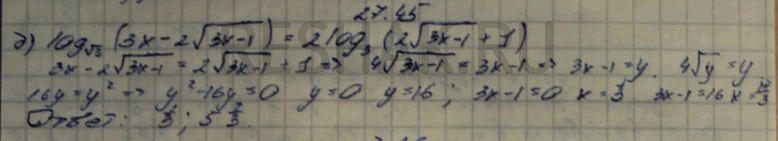 27.45
д) log√3 (3x-2√(3x-1)) = 2log3 (2√(3x-1) + 1)
3x-2√(3x-1) = 2√(3x-1) + 1 => 4√(3x-1) = 3x-1 => 3x-1=y. 4√y = y
16y=y² => y²-16y=0 y=0 y=16; 3x-1=0 x=1/3 3x-1=16 x=17/3
Ответ: 1/3; 5 2/3.